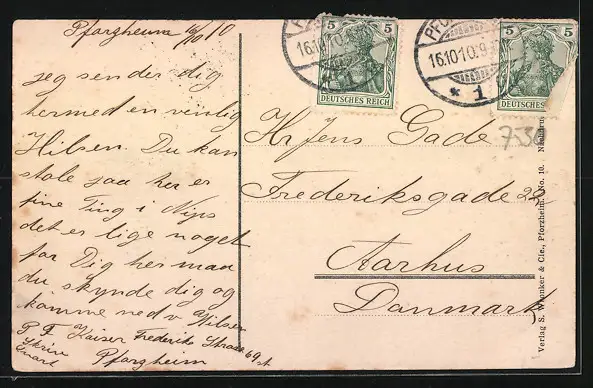 Pforzheim 16/10 10
jeg sender dig
hermed en venlig
Hilsen. Du kan
stole paa her er
fine Ting i Nips
det er lige noget
for Dig her maa
du skynde dig og
komme ned v Hilsen
P. F. Kaiser Frederik Strasse 69
Skriv Pforzheim
snart
PFORZHEIM
16.10.10.9
* 1
5 5
DEUTSCHES REICH
5 5
DEUTSCHES REICH
Hr Jens Gade
Frederiksgade 28
Aarhus
Danmark
Verlag S. & Cie., Pforzheim. No. 10.